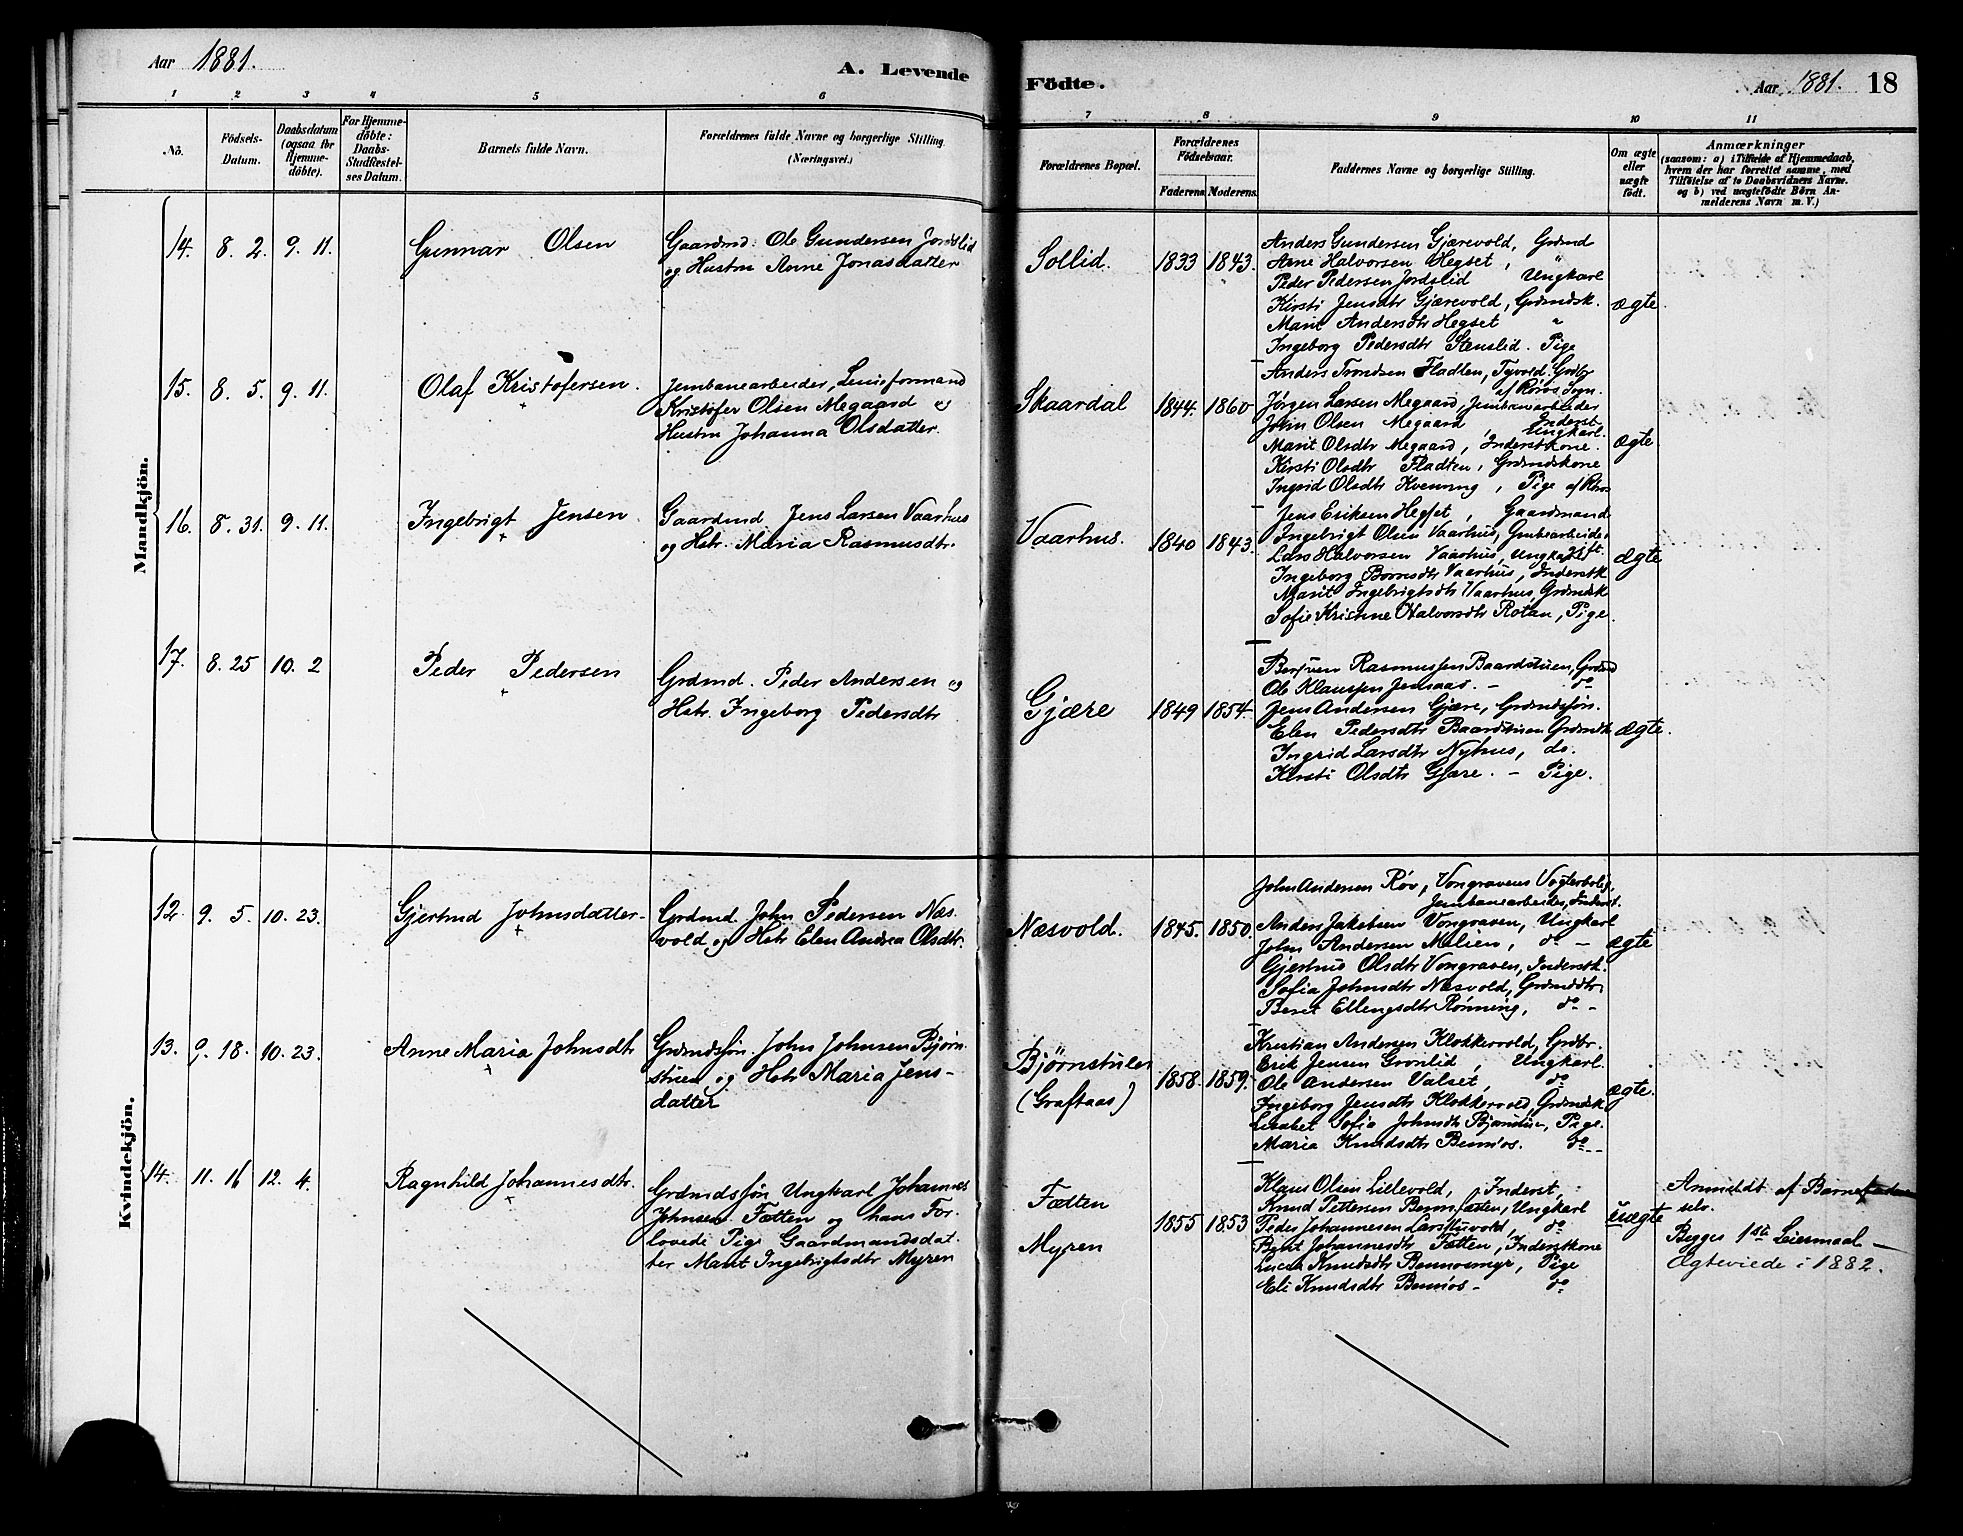 Aar 1881.
A. Levende Födte.
Aar 1881. 18
1 2 3 4 5 6 7 8 9 10 11
No.
Födsels-Datum.
Daabsdatum (ogsaa for Hjemme-döbte).
For Hjemme-döbte: Daabs-Stadfæstel-ses Datum.
Barnets fulde Navn.
Forældrenes fulde Navne og borgerlige Stilling.
(Næringsvei.)
Forældrenes Bopæl.
Forældrenes Födselsaar.
Faderens. Moderens.
Faddernes Navne og borgerlige Stilling.
Om ægte eller uægte født.
Anmærkninger
(saasom: a) i Tilfælde af Hjemmedaab,
hvem der har forrettet samme, med
Tilföielse af to Daabsvidners Navne.
og b) ved uægtefödte Börn An-
melderens Navn m. V.)
Mandkjön.
14. 8. 2. 9. 11. Gunnar Olsen
Gaardmd. Ole Gundersen Jordslid
og Hustru Anne Jonasdatter
Sollid. 1833 1843.
Anders Gundersen Gjærevold, Grdmd
Arne Halvorsen Hegset, "
Peder Pedersen Jordslid Ungkarl
Kirsti Jensdtr Gjærevold, Grdmdsk.
Marit Andersdtr Hegset "
Ingeborg Pedersdtr Stenslid. Pige
ægte
15. 8. 5. 9. 11. Olaf Kristofersen.
Jernbanearbeider, Lenseformand
Kristofer Olsen Megaard og
Hustru Johanna Olsdatter.
Skaardal 1844. 1860
Anders Trondsen Fladten, Tyvold, Grdbr
af Röros Sogn.
Jørgen Larsen Megaard, Jernbanearbeider
Inderst
John Olsen Megaard Ungkarl.
Marit Olsdtr Megaard, Inderstkone.
Kirsti Olsdtr Fladten, Grdmdskone
Ingrid Olsdtr Kvenning, Pige af Röros
ægte
16. 8. 31. 9. 11. Ingebrigt Jensen
Gaardmd. Jens Larsen Vaarhus
og Hstr. Maria Rasmusdtr.
Vaarhus. 1840 1843.
Jens Eriksen Hegset, Gaardmand
Ingebrigt Olsen Vaarhus, Grubearbeider
Lars Halvorsen Vaarhus, Ungkarl
Ingeborg Börresdtr Vaarhus, Inderstk
Marit Ingebrigtsdtr Vaarhus, Grdmdsk
Sofie Kristine Halvorsdtr Rotan, Pige.
ægte
17. 8. 25 10. 2 Peder Pedersen
Grdmd. Peder Andersen og
Hstr. Ingeborg Pedersdtr
Gjære 1849 1854.
Rasmussen Baardstuen, Grdmd
Ole Klaussen Jensaas. - do
Jens Andersen Gjære, Grdmdssøn.
Elen Pedersdtr Baardstuen Grdmdk
Ingrid Larsdtr Nyhus, do.
Kirsti Olsdtr Gjære. - Pige.
ægte.
Kvindekjön.
12. 9. 5. 10. 23. Gjertrud Johnsdatter
Grdmd. John Pedersen Næs-
vold og Hstr Elen Andrea Olsdtr.
Næsvold. 1845. 1850.
John Andersen Röv, Vongravens Vogterbolig,
Jernbanearbeider, Inderst.
Anders Jakobsen Vongraven, Ungkarl
John Andersen Mælien, do -
Gjertrud Olsdtr Vongraven, Inderstk.
Sofia Johnsdtr Næsvold, Grdmddtr.
Beret Ellingsdtr Rönning, do -
ægte
13. 9. 18. 10. 23. Anne Maria Johnsdtr
Grdmdssøn. John Johnsen Bjørn-
stuen og Hstr Maria Jens-
datter
Bjørnstuen
(Graftaas) 1858. 1859.
Kristian Andersen Klokkervold, Grdbr.
Erik Jensen Grönlid, Ungkarl.
Ole Andersen Valset, do
Ingeborg Jensdtr Klokkervold, Grdmdsk
Lisabet Sofia Johnsdtr Bjørnstuen, Pige.
Maria Knudsdtr Bennös. do -
ægte.
14. 11. 16 12. 4. Ragnhild Johannesdtr.
Grdmdssøn Ungkarl Johannes
Johnsen Fætten og hans For-
lovede Pige Gaardmandsdat-
ter Marit Ingebrigtsdtr Myren
Fætten
Myren 1855 1853
Klaus Olsen Lillevold, Inderst,
Knud Pettersen Bennösfætten, Ungkarl
Peder Johannesen Larsstuvold, do
Berit Johannesdtr Fætten, Inderstkone
Lucia Knudsdtr Bennosmyr, Pige
Eli Knudsdtr Bennös - do
uægte
Anmeldt af Barnefaderen
selv.
Begges 1ste Leiermaal -
Ægteviede i 1882.